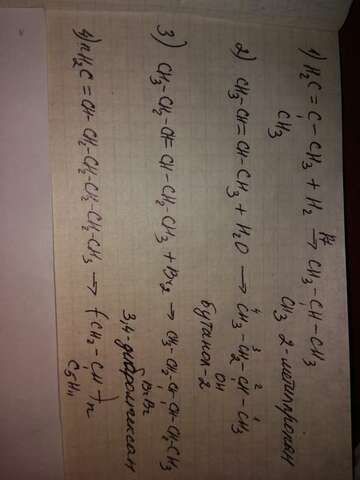 1) H₂C = C - CH₃ + H₂ →Pt CH₃ - CH - CH₃
CH₃ CH₃ 2-метилпропан
2) CH₃-CH=CH-CH₃ + H₂O → ⁴CH₃-³CH₂-²CH-¹CH₃
OH
бутанол-2
3) CH₃-CH₂-CH=CH-CH₂CH₃ + Br₂ → CH₃-CH₂-CH-CH-CH₂-CH₃
Br Br
3,4-дибромгексан
4) nH₂C=CH-CH₂-CH₂-CH₂-CH₂-CH₃ → (CH₂-CH)n
C₅H₁₁